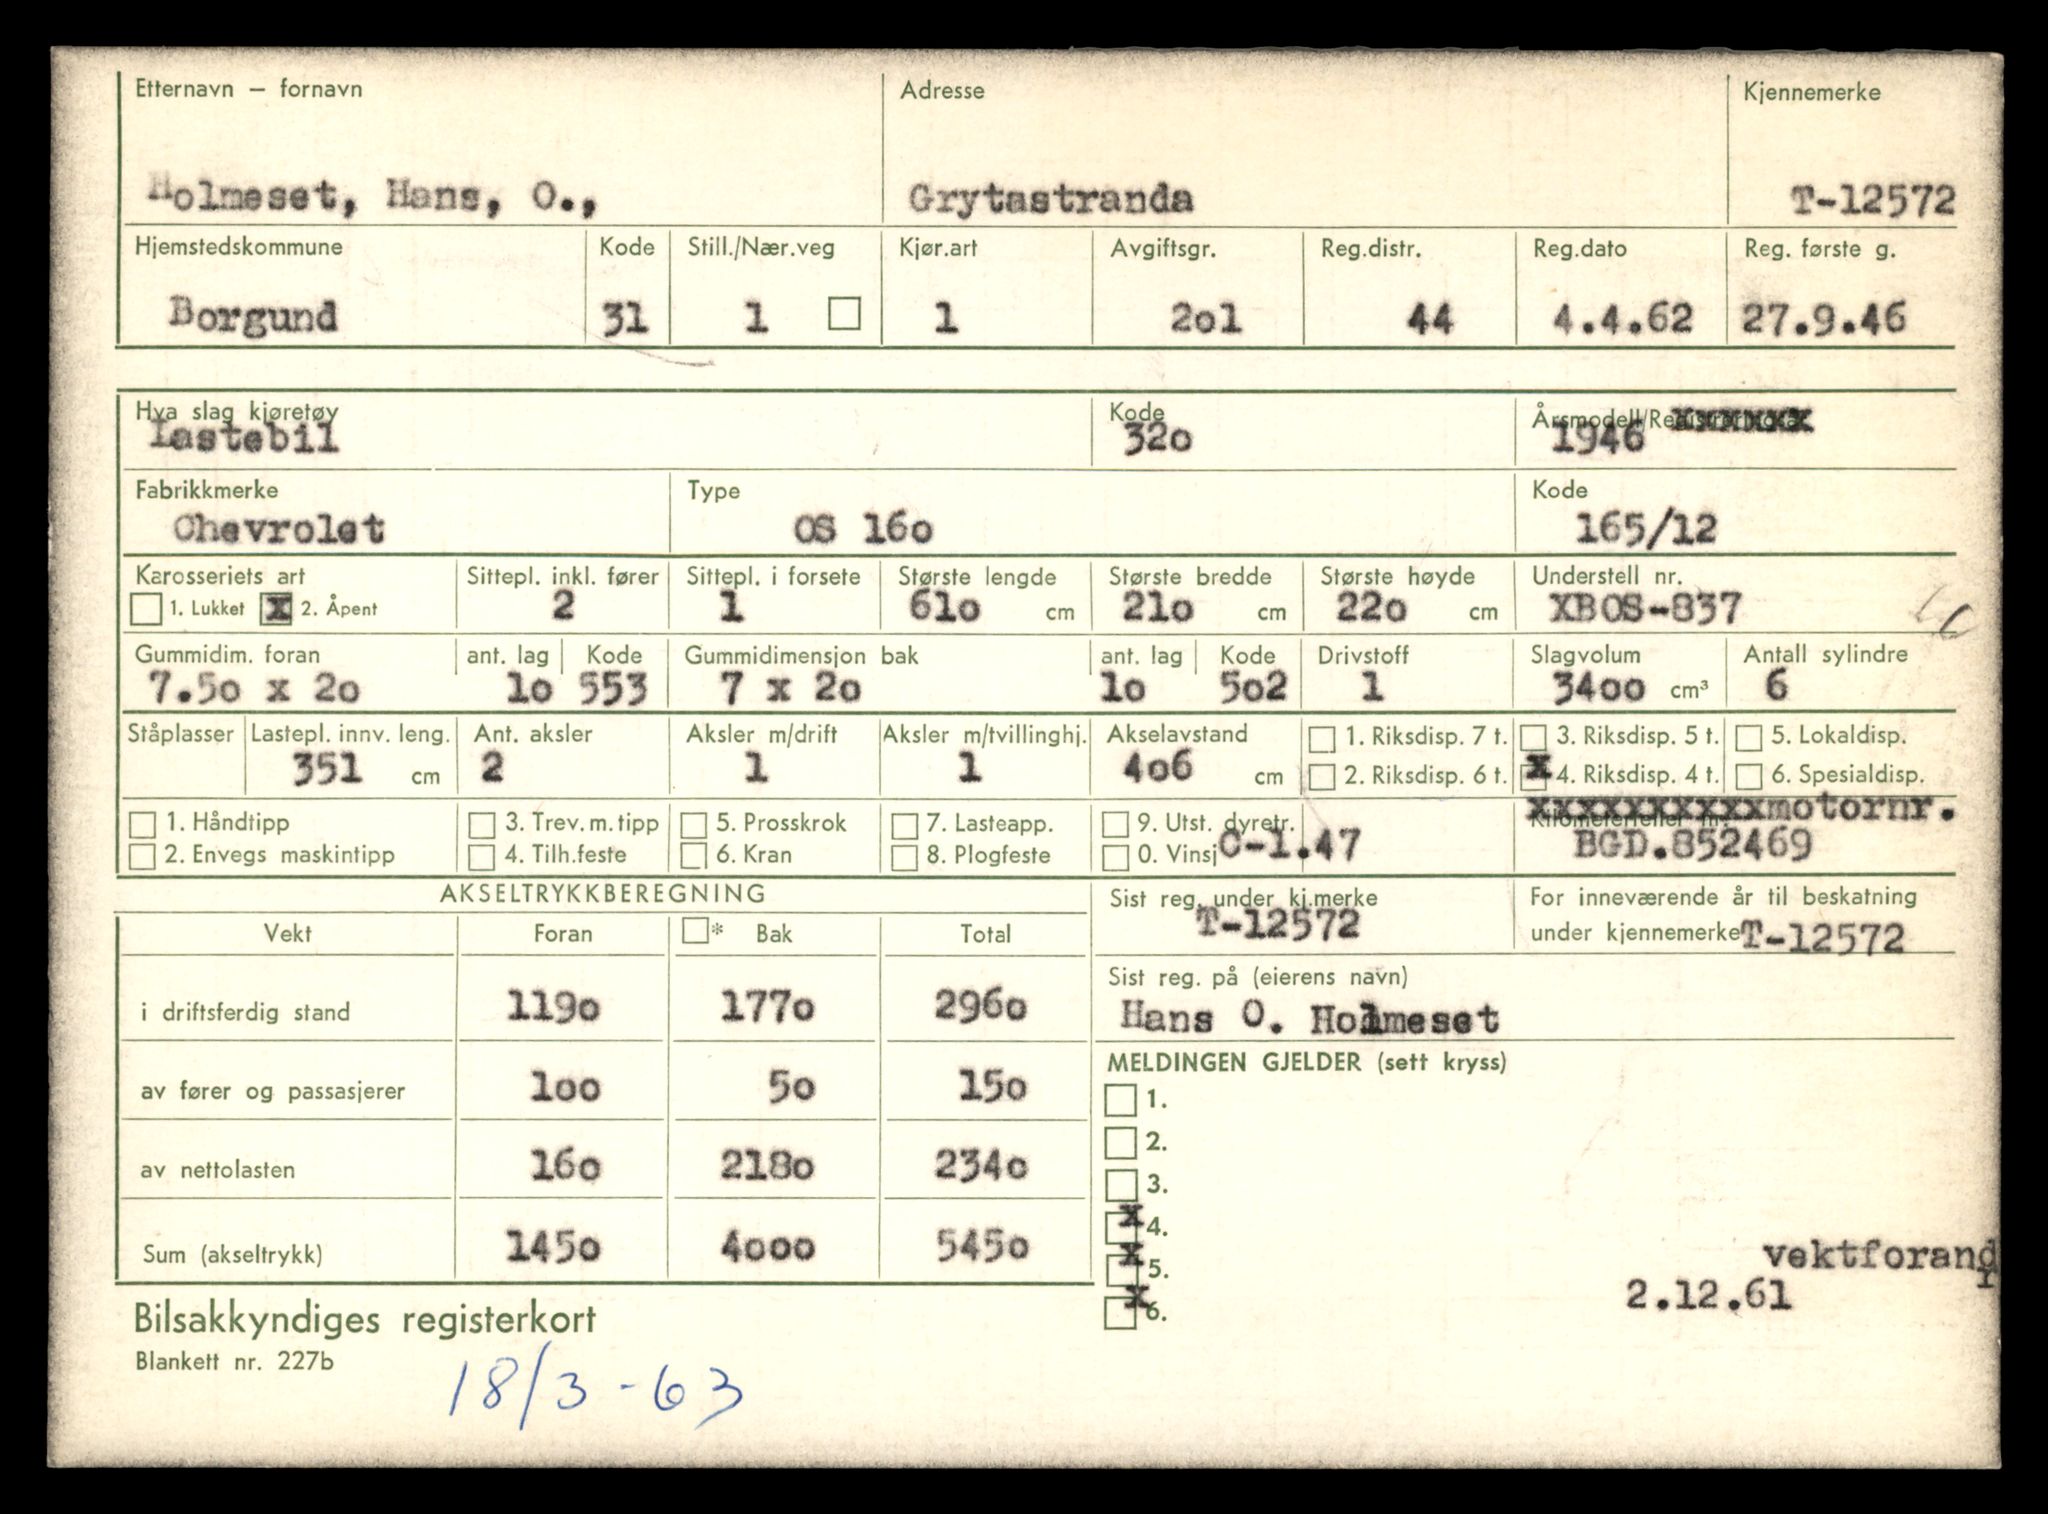 Etternavn – fornavn Adresse Kjennemerke
Holmeset, Hans, O., Grytastranda T-12572
Hjemstedskommune Kode Still./Nær.veg Kjør.art Avgiftsgr. Reg.distr. Reg.dato Reg. første g.
Borgund 31 1 1 2o1 44 4.4.62 27.9.46
Hva slag kjøretøy Kode Årsmodell/Registreringsår
Lastebil 32o 1946 xxxxxx
Fabrikkmerke Type Kode
Chevrolet OS 16o 165/12
Karosseriets art Sittepl. inkl. fører Sittepl. i forsete Største lengde Største bredde Største høyde Understell nr.
1. Lukket x 2. Åpent 2 1 61o cm 21o cm 22o cm XBOS-837
Gummidim. foran ant. lag Kode Gummidimensjon bak ant. lag Kode Drivstoff Slagvolum Antall sylindre
7.5o x 2o 1o 553 7 x 2o 1o 5o2 1 34oo cm³ 6
Ståplasser Lastepl. innv. leng. Ant. aksler Aksler m/drift Aksler m/tvillinghj. Akselavstand 1. Riksdisp. 7 t. 3. Riksdisp. 5 t. 5. Lokaldisp.
351 cm 2 1 1 4o6 cm 2. Riksdisp. 6 t. x 4. Riksdisp. 4 t. 6. Spesialdisp.
xxxxxxxxxxmotornr.
1. Håndtipp 3. Trev. m. tipp 5. Prosskrok 7. Lasteapp. 9. Utst. dyretr. Kilometerteller nr.
2. Envegs maskintipp 4. Tilh.feste 6. Kran 8. Plogfeste 0. Vinsj C-1.47 BGD.852469
AKSELTRYKKBEREGNING Sist reg. under kj.merke For inneværende år til beskatning
Vekt Foran * Bak Total T-12572 under kjennemerke T-12572
Sist reg. på (eierens navn)
i driftsferdig stand 119o 177o 296o Hans O. Holmeset
MELDINGEN GJELDER (sett kryss)
av fører og passasjerer 1oo 5o 15o 1.
2.
av nettolasten 16o 218o 234o 3.
x 4.
Sum (akseltrykk) 145o 4ooo 545o x 5. vektforandr
x 6. 2.12.61
Bilsakkyndiges registerkort
Blankett nr. 227b
18/3-63